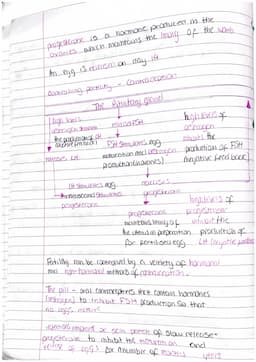 progesterone is a hormone produced in the
ovaries which maintains the lining of the womb
An egg is released on day 14
Controlling fertility - Contraception
The Pituitary gland
high levels
oestrogen
the production of LH
releases LH
releases FSH
FSH stimulates egg
maturation and oestrogen
production (ovaries)
high levels of
oestrogen
inhibits the
production of FSH
(negative feed back)
LH stimulates egg
release and stimulates
progesterone
ovaries
progesterone
progesterone
maintains lining of
the uterus in preparation
for fertilised egg
high levels of
progesterone
inhibit the
production of
LH (negative feedback)
Fertility can be controlled by a variety of hormonal
and non-hormonal methods of contraception.
The pill - oral contraceptives that contain hormones
(oestrogen) to inhibit FSH production so that
no eggs mature
implant or skin patch of slow release
progesterone to inhibit the maturation and
release of eggs for a number of months
years